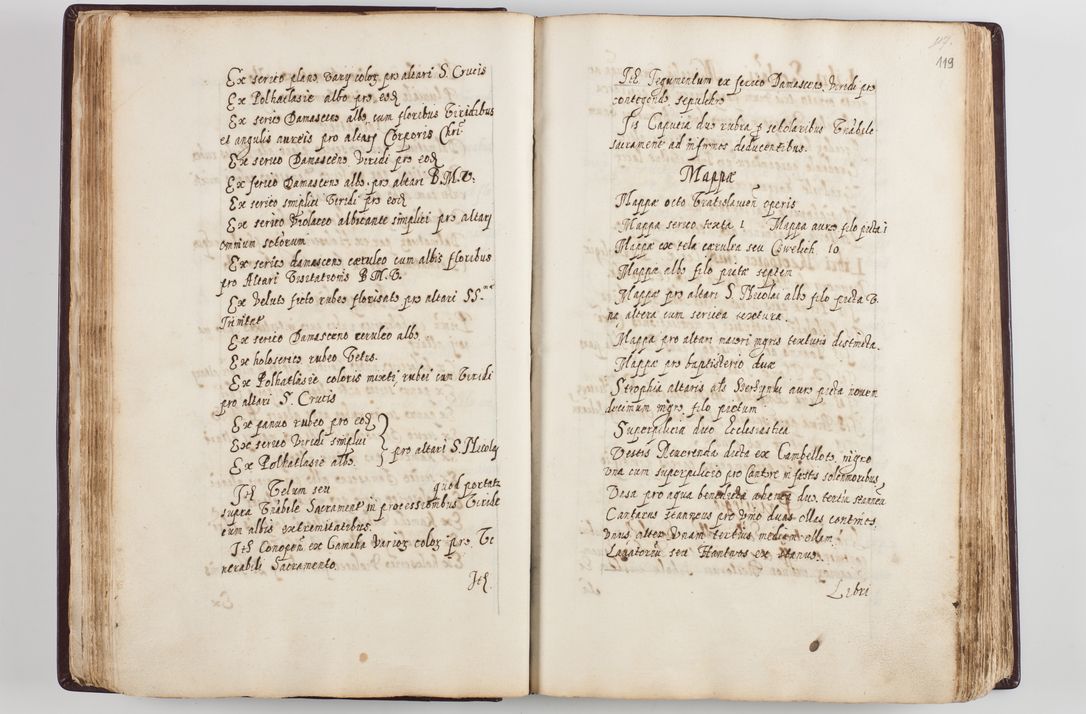 Ex serico plano vary color pro altari S. Crucis
Ex Polhatlasie albo pro eod
Ex serico Damasceno albo cum floribus viridibus
et angulis aureis pro altarj Corporis Chri
Ex serico Damasceno viridi pro eod
Ex serico Damasceno albo pro altari B. M. V.
Ex serico simplici viridi pro eod
Ex serico violaceo albicante simplici pro altarj
omnium sctorum
Ex serico damasceno cæruleo cum albis floribus
pro Altari Visitationis B M. V.
Ex veluto ficto rubeo florisato pro altari SS.
Trinitat
Ex serico Damasceno ceruleo albo
Ex holoserico rubeo
Ex Polhatlasie coloris mixti rubei cum viridi
pro altari S. Crucis
Ex panno rubeo pro eod
Ex serico viridi simplici
Ex Polhatlasie albo. pro altari S. Nicolaj
It Velum seu quod portatr
supra vnbile Sacrament in processionibus viride
cum albis extremitatibus.
It Conopeu ex Gamcha varior color pro Ve
nerabili Sacramento
It
119
It Tegumentum ex serico Damasceno viridi pro
contegendo sepulchro
It Caputia duo rubra p scholaribus vnabile
sacrament ad infirmos deducentibus.
Mappæ
Mappæ octo Vratislavien operis
Mappa serico texta 1 Mappa auro filo picta 1
Mappæ ex tela cærulea seu Cwelich 10
Mappæ albo filo pictæ septem
Mappæ pro altari S. Nicolai albo filo picta v
na, altera cum serica textura.
Mappa pro altari maiori nigris texturis distincta.
Mappæ pro baptisterio duæ
Strophia altaris als auro picta novem
decimum nigro filo pictum
Superpilicia duo Ecclesiastica
Vestis Reuerenda dicta ex Cambelloto nigro
vna cum superpilicio pro Cantore in festis solennioribus,
Vasa pro aqua benedicta ahenea duo, tertiu stanneu
Cantarus stanneus pro vino duas ollas continens
vnus, alter vnam tertius mediam ollam.
Lauatoriu seu Hantwos ex stanno.
Libri